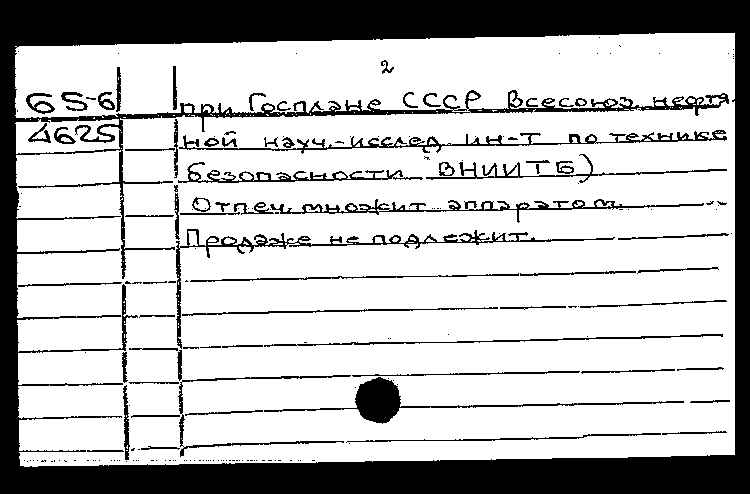 2
65-6 при Госплане СССР Всесоюз. нефтя-
4625 ной науч.-исслед. ин-т по технике
безопасности ВНИИТБ)
Отпеч. множит. аппаратом.
Продаже не подлежит.